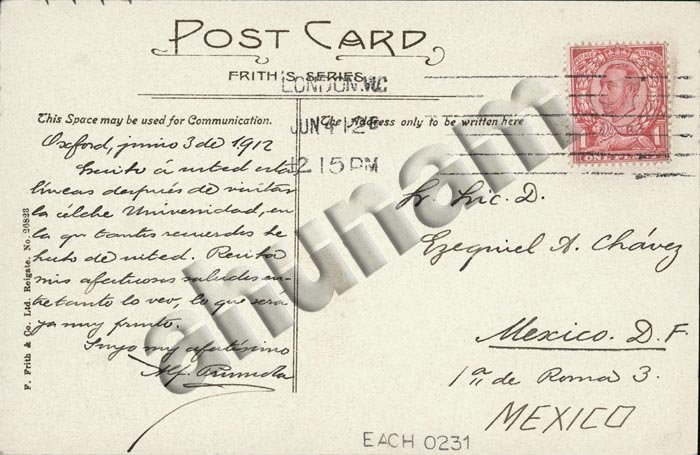 POST CARD
FRITH'S SERIES
LONDON.W.C
JUN 4 12
12 15 PM
ONE PENNY
This Space may be used for Communication.
The Address only to be written here
Oxford, junio 3 de 1912
Escribo á usted estas
líneas después de visitar
la célebre Universidad, en
la que tantos recuerdos he
hecho de usted. Reciba
mis afectuosos saludos en-
tretanto lo veo, lo que será
ya muy pronto.
Suyo muy afectísimo
Alf.
Sr. Lic. D.
Ezequiel A. Chávez
Mexico. D. F.
1ª de Roma 3.
MEXICO
EACH 0231
F. Frith & Co. Ltd. Reigate. No. 26823
ahunam